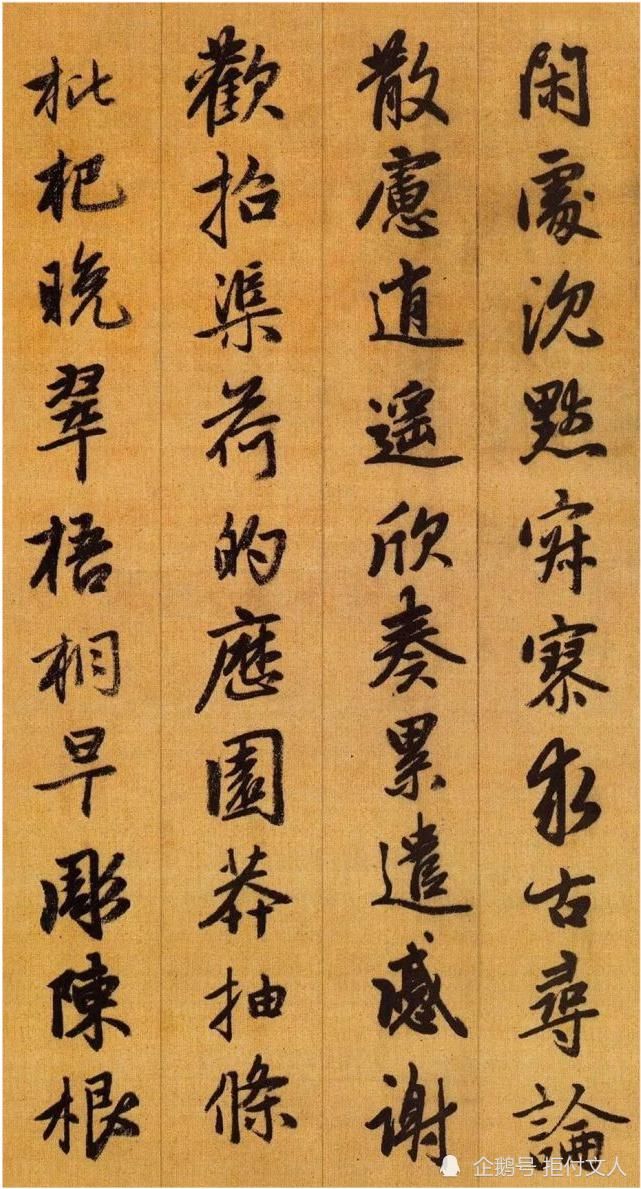 閑處沈默寂寥求古尋論
散慮逍遙欣奏累遣慼謝
歡招渠荷的歷園莽抽條
枇杷晚翠梧桐早彫陳根
企鹅号 拒付文人